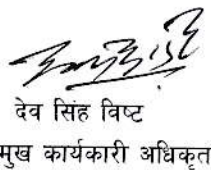 देव सिंह विष्ट
मुख कार्यकारी अधिकृत